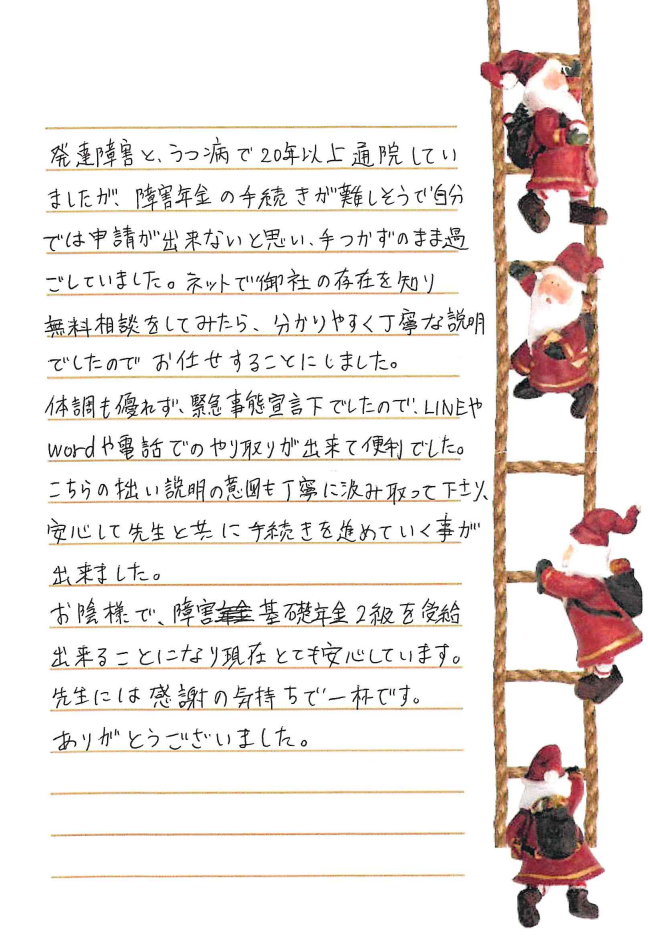 発達障害と、うつ病で20年以上通院してい
ましたが、障害年金の手続きが難しそうで自分
では申請が出来ないと思い、手つかずのまま過
ごしていました。ネットで御社の存在を知り
無料相談をしてみたら、分かりやすく丁寧な説明
でしたのでお任せすることにしました。
体調も優れず、緊急事態宣言下でしたので、LINEや
wordや電話でのやり取りが出来て便利でした。
こちらの拙い説明の意図も丁寧に汲み取って下さり、
安心して先生と共に手続きを進めていく事が
出来ました。
お陰様で、障害基礎年金2級を受給
出来ることになり現在とても安心しています。
先生には感謝の気持ちで一杯です。
ありがとうございました。